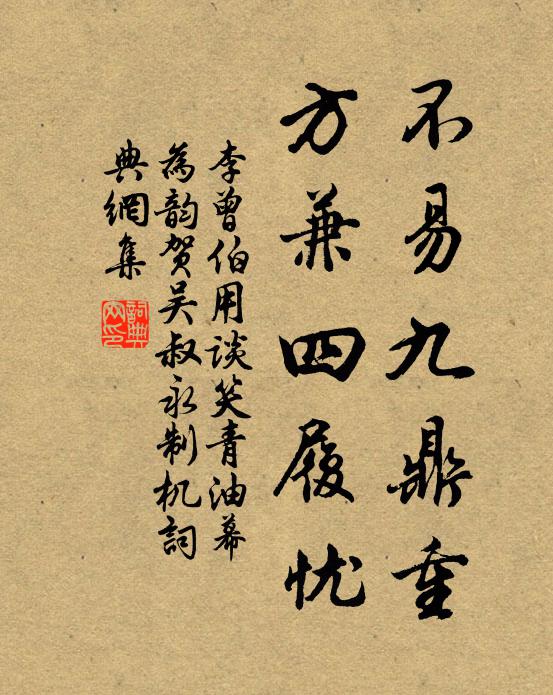 不易九鼎重
方兼四履忧
李曾伯用谈笑青油幕
為韵贺吴叔永制机詞
典網集
詞典网印